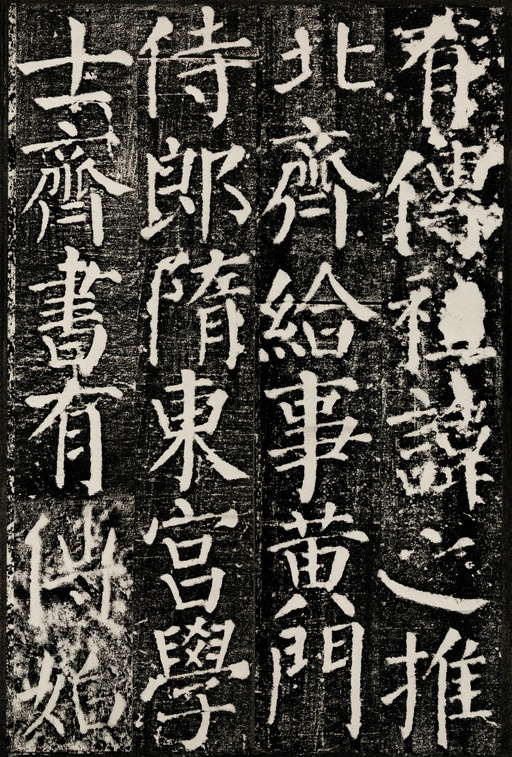 有傳祖諱之推
北齊給事黃門
侍郎隋東宮學
士齊書有傳始